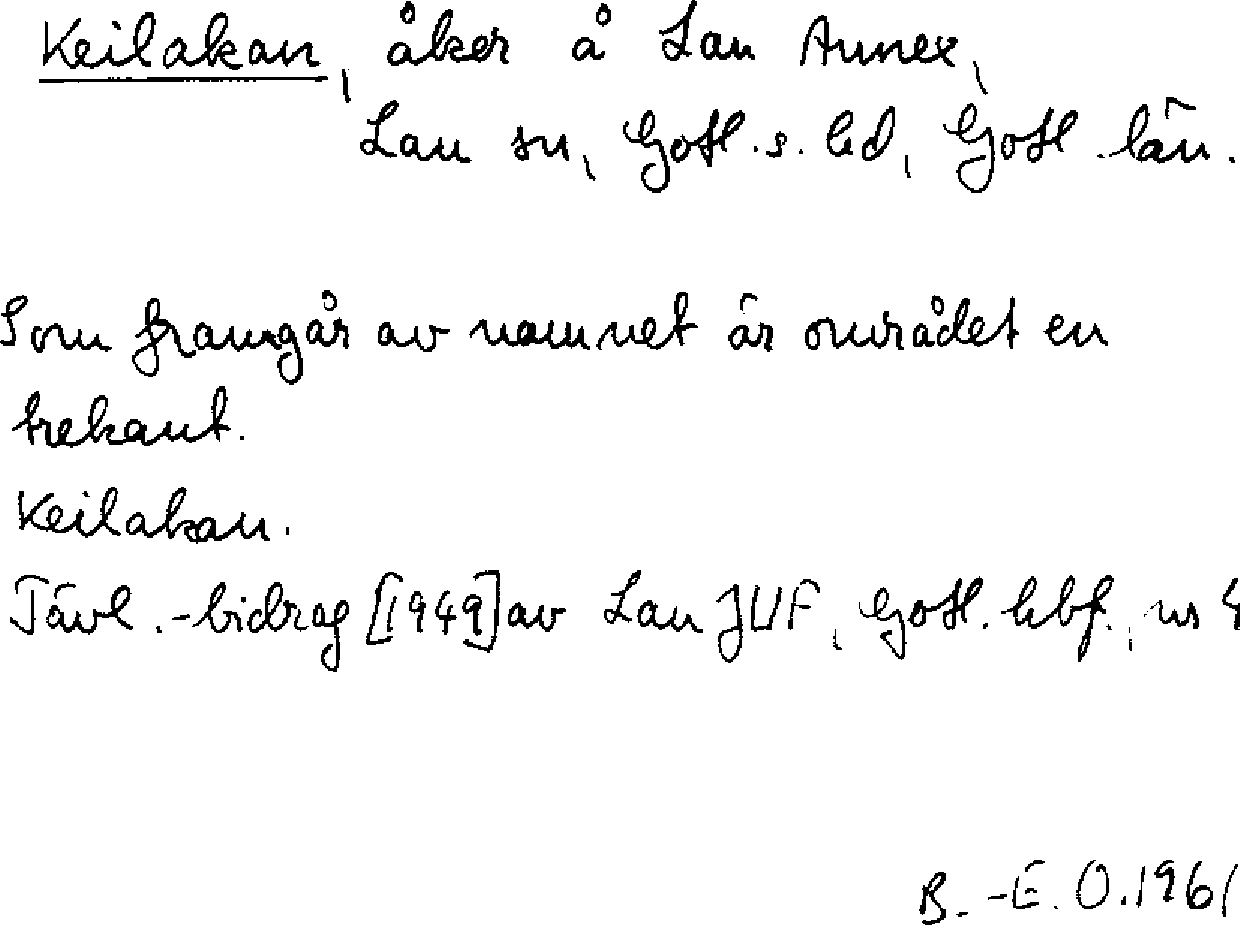 Keilakan, åker å Lau Annex,
Lau sn, Gotl. s. hd, Gotl. län.
Som framgår av namnet är området en
trekant.
Keilakan.
Tävl.-bidrag [1949] av Lau JUF, Gotl. hbf., nr 4
B.-E. O. 1961